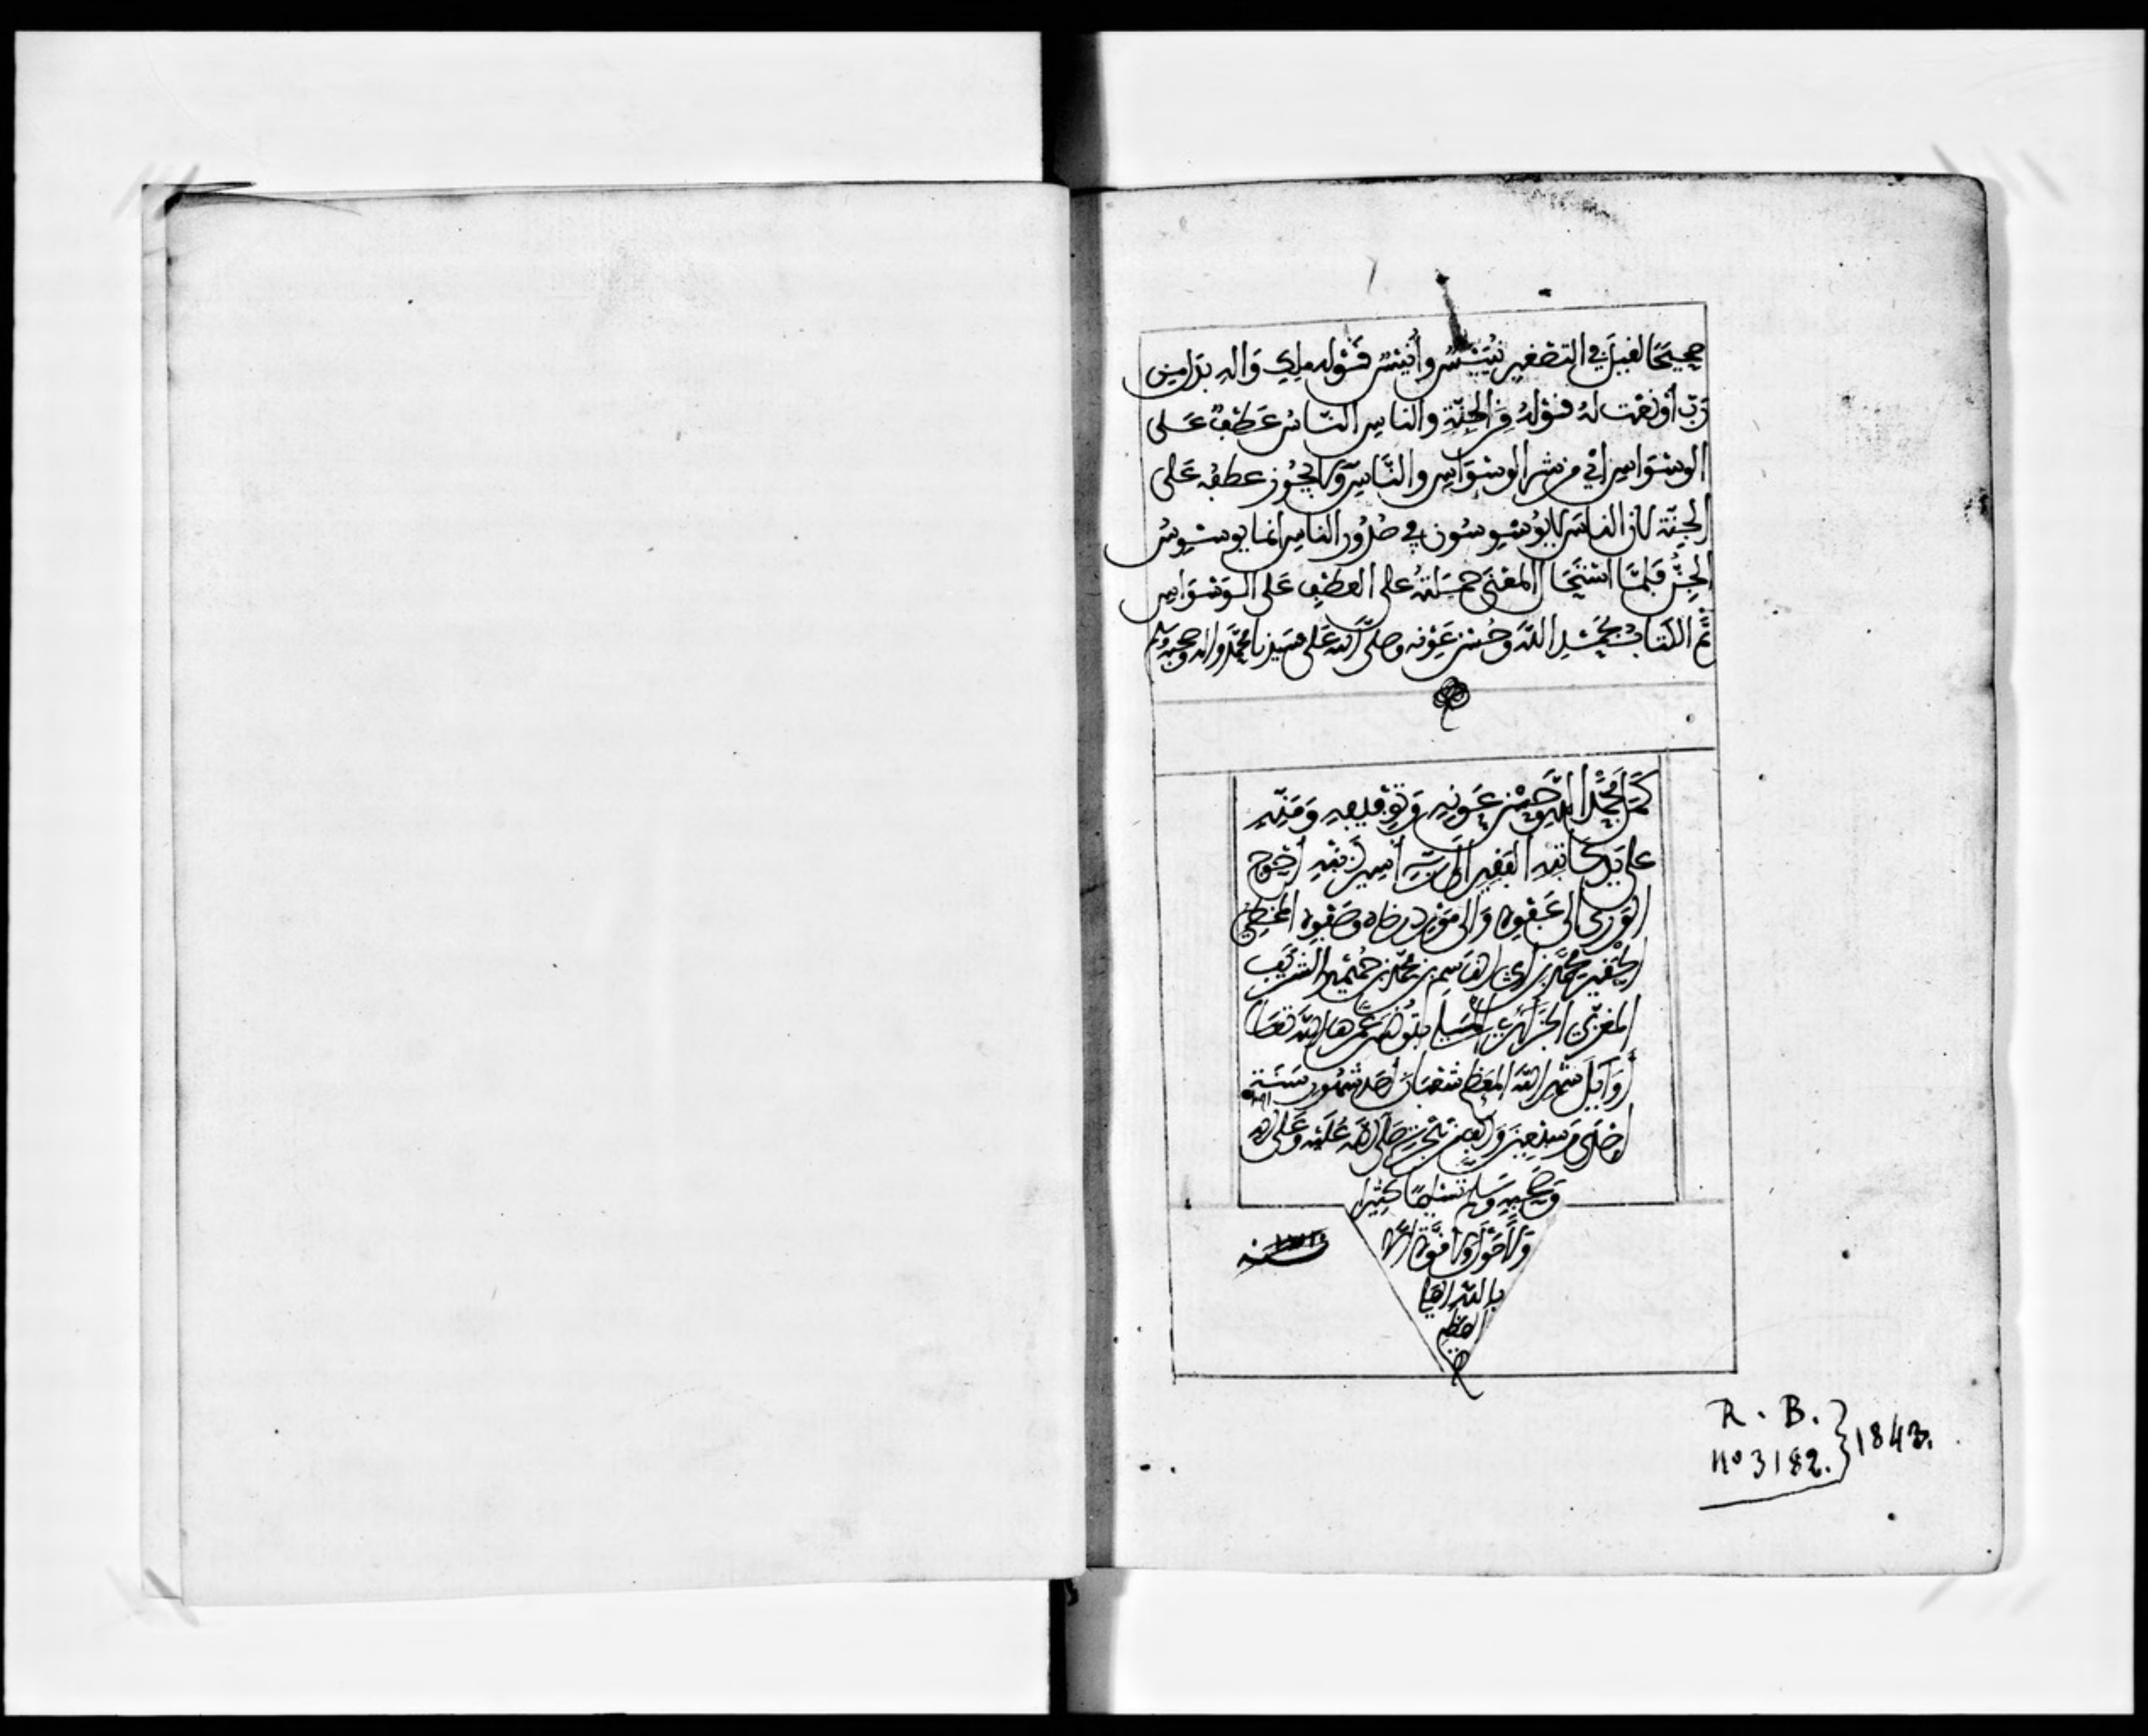 صحيحا لقيل في التصغير نييس وأنيس قوله ملك واله بدل من
رب أو نعت له قوله من الجنة والناس الناس عطف على
الوسواس اي من شر الوسواس والناس ولا يجوز عطفه على
الجنة لان الناس لا يوسوسون في صدور الناس انما يوسوس
الجن فلما استحال المعنى حملته على العطف على الوسواس
تم الكتاب بحمد الله وحسن عونه وصلى الله على سيدنا محمد واله وصحبه وسلم
كمل بحمد الله وحسن عونه وتوفيقه ومنه
على يد كاتبه الفقير الى ربه أسير ذنبه أحوج
الورى الى عفوه والى مورد رضاه وصفوه المخطئ
الحقير محمد بن ابي القاسم بن محمد بن الشريف
المغربي الجزائري بتونس عمرها الله تعالى
أوايل شهر الله المعظم شعبان أحد شهور سنة
إحدى وسبعين وألف صلى الله عليه وعلى اله
وصحبه وسلم تسليما كثيرا
ولا حول ولا قوة إلا
بالله العلي
العظيم
سنة
R. B.
no 3182. } 1843.